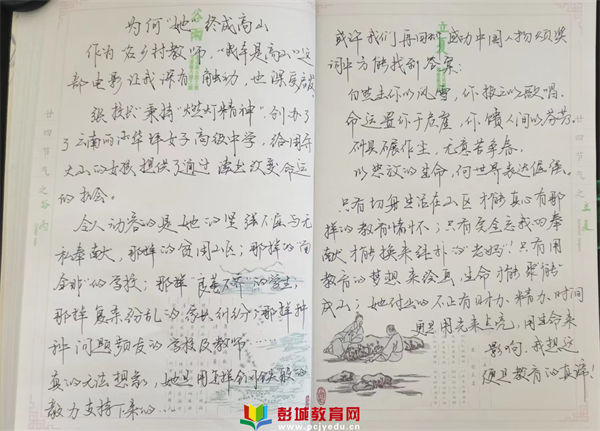 为何“她”终成高山
作为名乡村教师，“我本是高山”这
部电影让我深有触动，也深受启发
张校长秉持“燃灯精神”，创办了
了云南丽江华坪女子高级中学，给困于
大山的女孩提供了通过读书改变命运
的机会。
令人动容的是她的坚强不屈与无
私奉献，那样的贫困山区；那样的
的学校；那样“良莠不齐”的学生；
那样复杂纷乱的家庭纠纷；那样种
种问题频发的学校及教师……
真的无法想象，她是用怎样钢铁般的
毅力支持下来的…
或许我们再回味感动中国人物颁奖
词中方能找到答案：
自然击你以风雪，你报之以歌唱。
命运置你于危崖，你馈人间以芬芳。
不惧碾作尘，无意苦争春，
以怒放的生命，向世界表达倔强。
只有切身生活在山区才能真心有那
样的教育情怀；只有完全忘我的奉
献才能换来 的“老妈”！只有用
教育的梦想来绘画，生命才能聚能
成山；她付出的不止有财力、精力、时间
更是用光来点亮，用生命来
影响，我想这
便是教育的真谛！
廿四节气之谷雨
廿四节气之立夏
彭城教育网
www.pcjyedu.cn